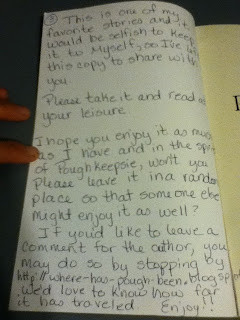 ☺ This is one of my
favorite stories and it
would be selfish to keep
it to Myself, so I've left
this copy to share with
you.
Please take it and read at
your leisure.
I hope you enjoy it as much
as I have and in the spirit
of Poughkeepsie, won't you
please leave it in a random
place so that someone else
might enjoy it as well?
If you'd like to leave a
comment for the author, you
may do so by stopping by
http://where-has-pough-been.blogspot
we'd love to know how far
it has traveled. Enjoy!!